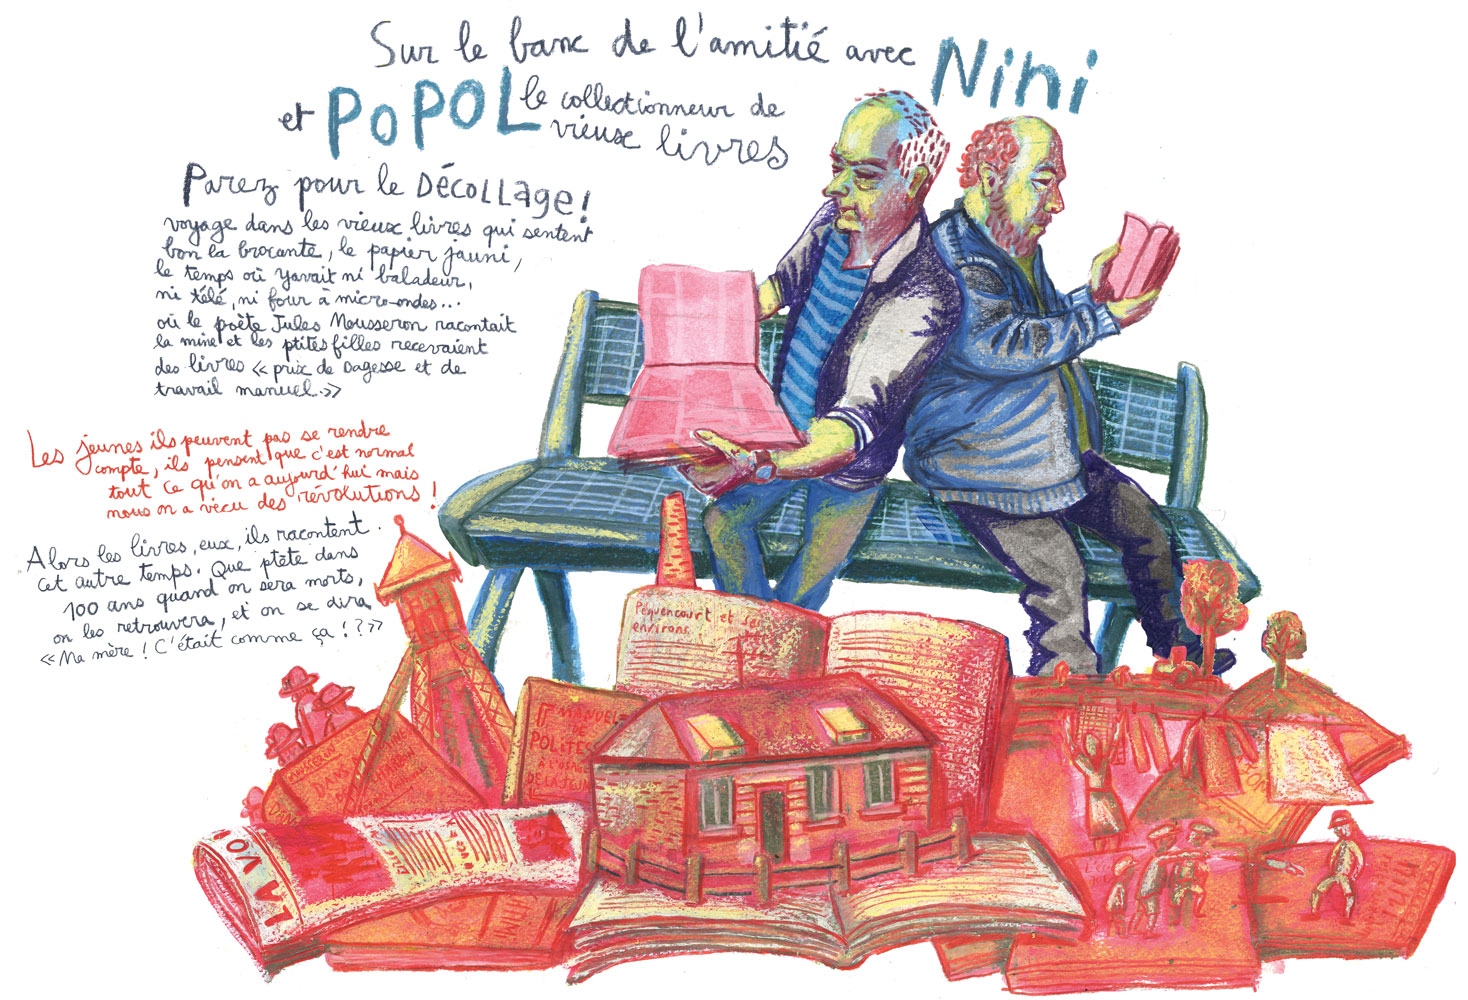 Sur le banc de l'amitié avec Nini
et POPOL le collectionneur de
vieux livres
Parez pour le DÉCOLLage!
voyage dans les vieux livres qui sentent
bon la brocante, le papier jauni,
le temps où yavait ni baladeur,
ni télé, ni four à micro-ondes...
où le poète Jules Mousseron racontait
la mine et les ptites filles recevaient
des livres « prix de sagesse et de
travail manuel.»
Les jeunes ils peuvent pas se rendre
compte, ils pensent que c'est normal
tout ce qu'on a aujourd'hui mais
nous on a vécu des révolutions!
Alors les livres, eux, ils racontent
cet autre temps. Que ptète dans
100 ans quand on sera morts,
on les retrouvera, et on se dira
«Ma mère! C'était comme ça!?»
Pequencourt et ses
environs
MANUEL
DE
POLITES
À L'USAGE
DE LA JEUN
DANS
LA VO